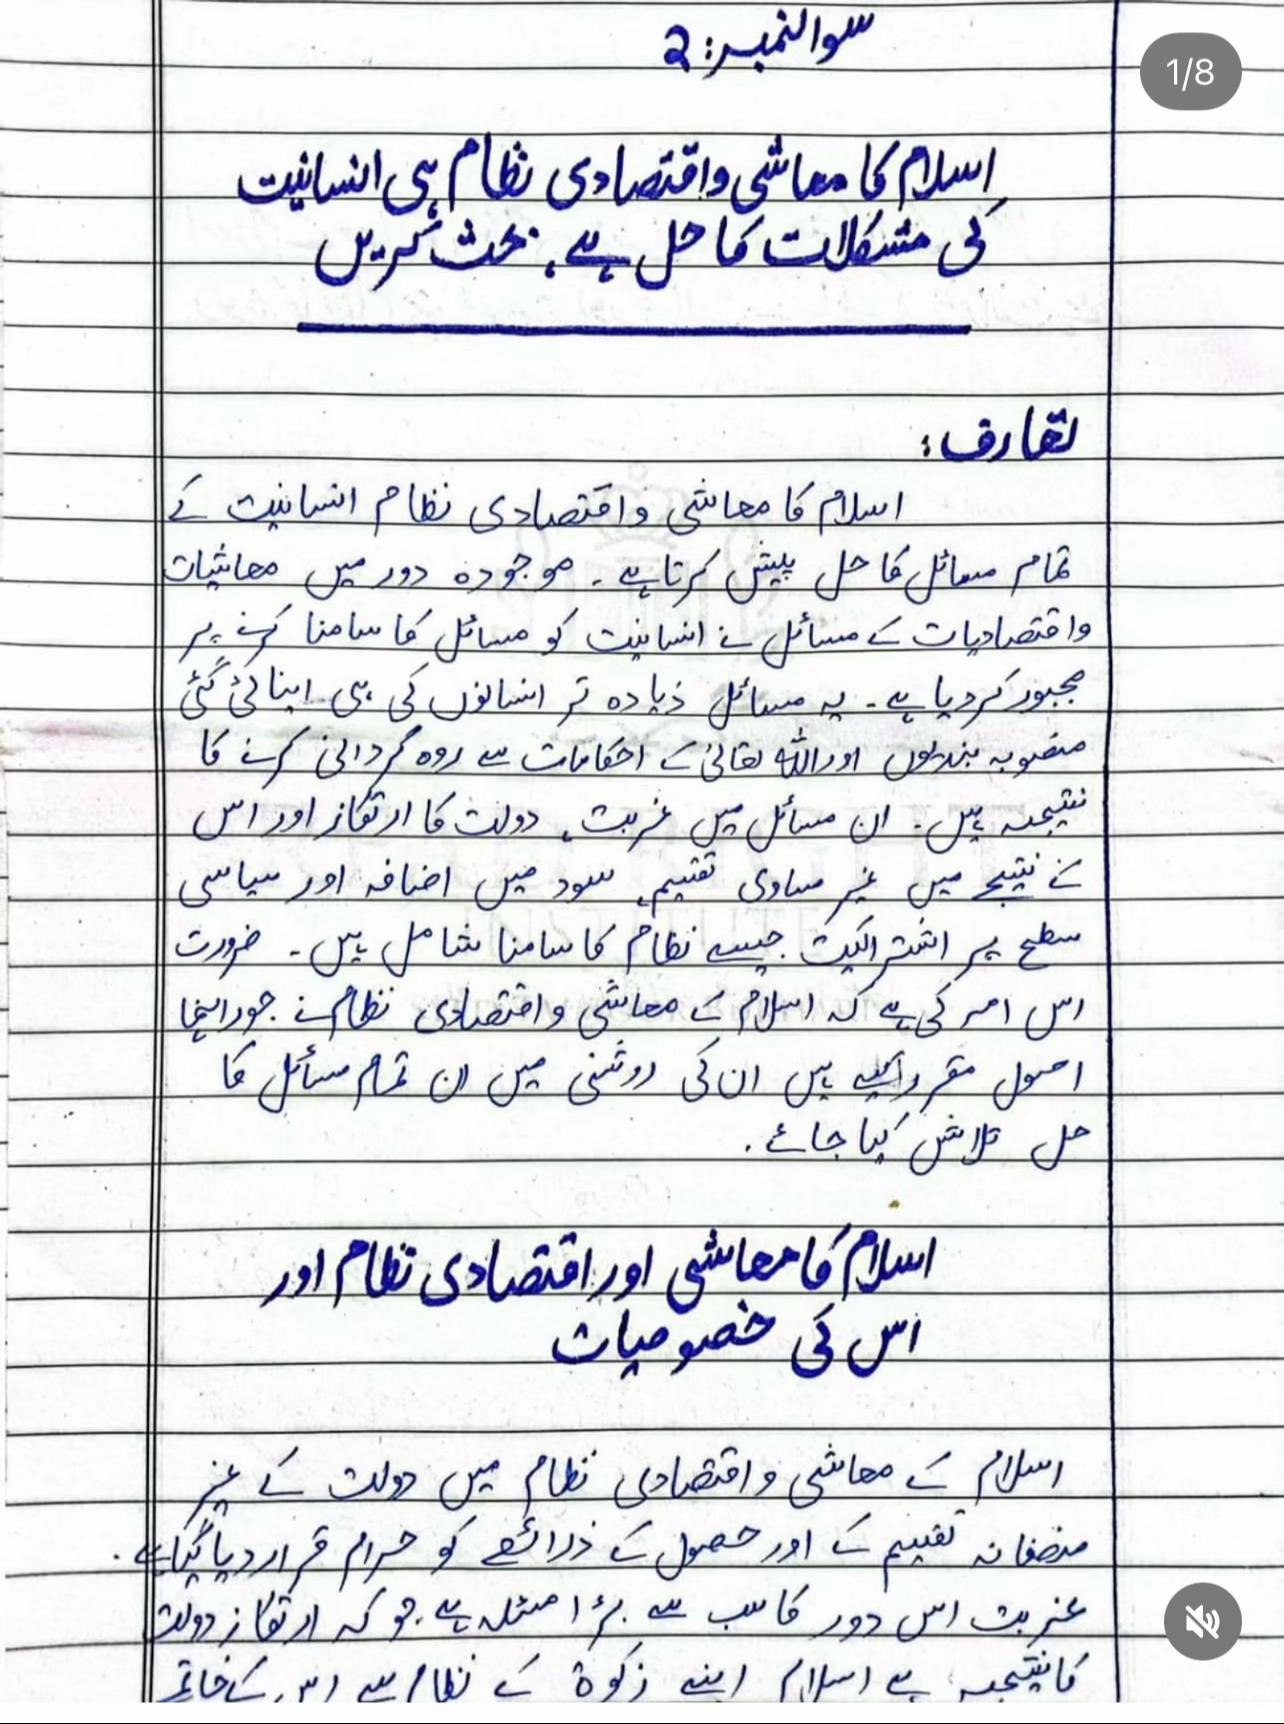 سوالنمبر: 2
1/8
اسلام کا معاشی و اقتصادی نظام ہی انسانیت
کی مشکلات کا حل ہے، بحث کریں
تعارف:
اسلام کا معاشی و اقتصادی نظام انسانیت کے
تمام مسائل کا حل پیش کرتا ہے۔ موجودہ دور میں معاشیات
و اقتصادیات کے مسائل نے انسانیت کو مسائل کا سامنا کرنے پر
مجبور کر دیا ہے۔ یہ مسائل زیادہ تر انسانوں کی ہی اپنائی گئی
منصوبہ بندیوں اور اللہ تعالیٰ کے احکامات سے روہ گردانی کرنے کا
نتیجہ ہیں۔ ان مسائل میں غربت، دولت کا ارتکاز اور اس
کے نتیجے میں غیر مساوی تقسیم، سود میں اضافہ اور سیاسی
سطح پر اشتراکیت جیسے نظام کا سامنا شامل ہیں۔ ضرورت
اس امر کی ہے کہ اسلام کے معاشی و اقتصادی نظام نے جو راہنما
اصول مقرر کیے ہیں ان کی روشنی میں ان تمام مسائل کا
حل تلاش کیا جائے۔
اسلام کا معاشی اور اقتصادی نظام اور
اس کی خصوصیات
اسلام کے معاشی و اقتصادی نظام میں دولت کے غیر
منصفانہ تقسیم کے اور حصول کے ذرائع کو حرام قرار دیا گیا ہے۔
غربت اس دور کا سب سے بڑا مسئلہ ہے جو کہ ارتکاز دولت
کا نتیجہ ہے اسلام اپنے زکوٰۃ کے نظام سے اس کے خاتمے